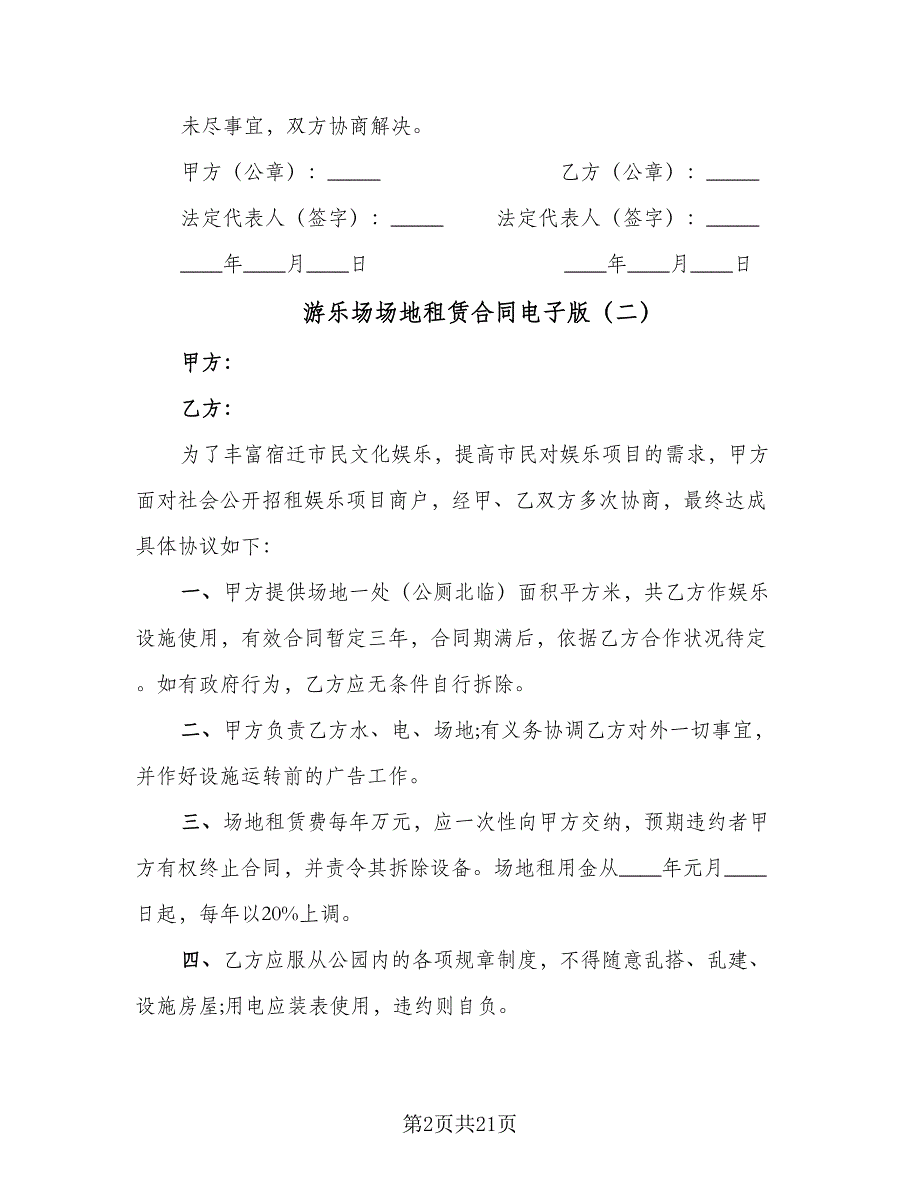 未尽事宜，双方协商解决。
甲方（公章）：_____ 乙方（公章）：_____
法定代表人（签字）：_____ 法定代表人（签字）：_____
____年____月____日 ____年____月____日
游乐场场地租赁合同电子版（二）
甲方：
乙方：
为了丰富宿迁市民文化娱乐，提高市民对娱乐项目的需求，甲方
面对社会公开招租娱乐项目商户，经甲、乙双方多次协商，最终达成
具体协议如下：
一、甲方提供场地一处（公厕北临）面积平方米，共乙方作娱乐
设施使用，有效合同暂定三年，合同期满后，依据乙方合作状况待定
。如有政府行为，乙方应无条件自行拆除。
二、甲方负责乙方水、电、场地;有义务协调乙方对外一切事宜，
并作好设施运转前的广告工作。
三、场地租赁费每年万元，应一次性向甲方交纳，预期违约者甲
方有权终止合同，并责令其拆除设备。场地租用金从____年元月____
日起，每年以20%上调。
四、乙方应服从公园内的各项规章制度，不得随意乱搭、乱建、
设施房屋;用电应装表使用，违约则自负。
第2页共21页